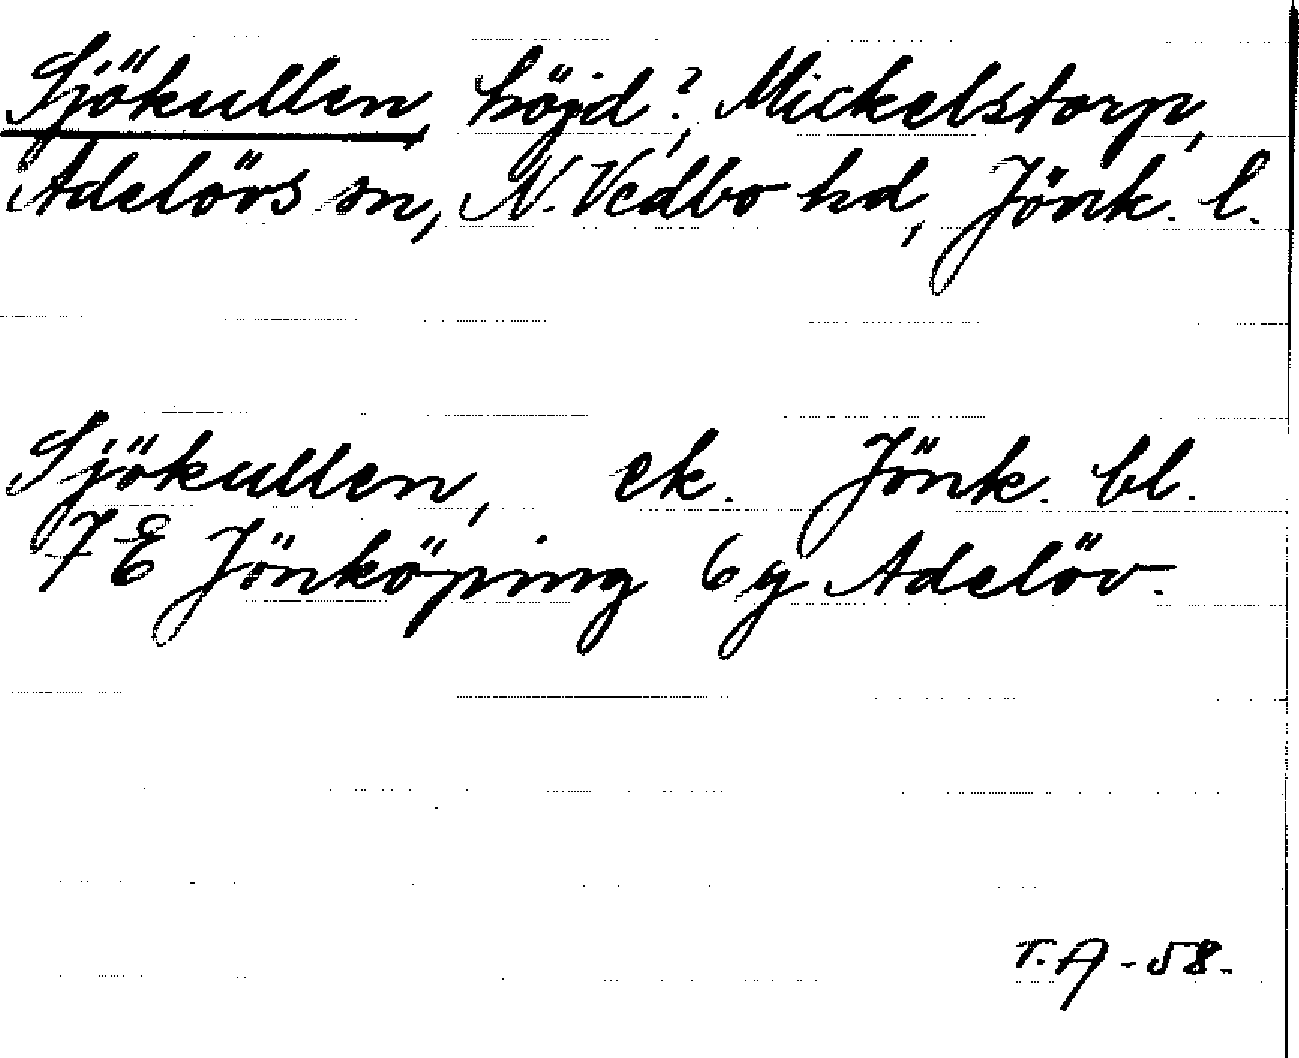 Sjökullen, höjd?, Mickelstorp,
Adelövs sn, N. Vedbo hd, Jönk. l.
Sjökullen, ek. Jönk. bl.
7E Jönköping 6 g Adelöv.
T.A -58.